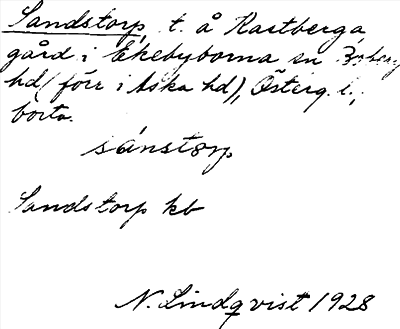 Sandstorp, t. å Kartberga
gård i Ekebyborna sn Boberg
hd (förr i Aska hd), Österg. l.,
borta.
sánstorp
Sandstorp kb
N. Lindqvist 1928